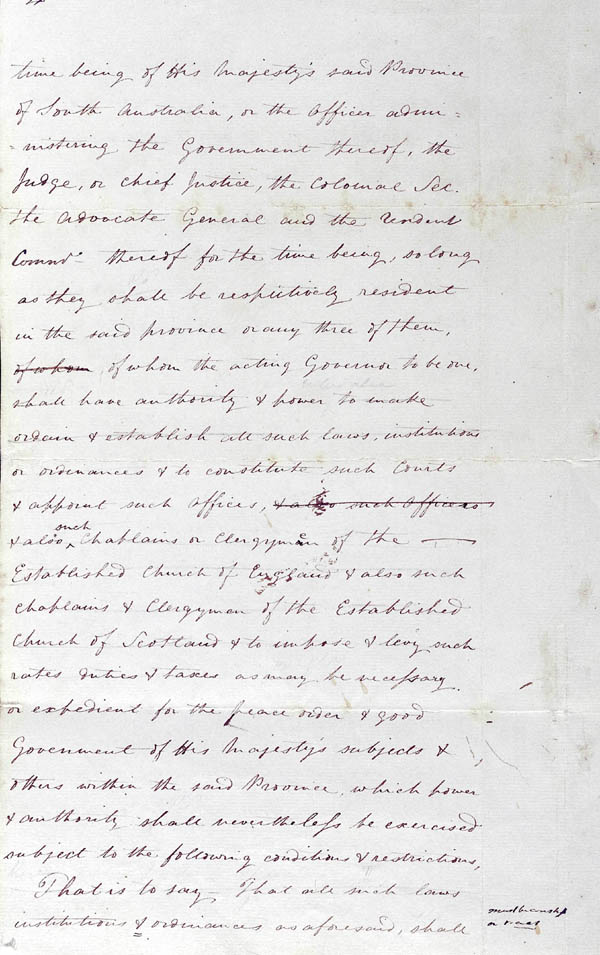 time being of His Majesty's said Province
of South Australia, or the Officer admi-
-nistering the Government thereof, the
Judge, or Chief Justice, the Colonial Sec.
the Advocate General and the Resident
Commr. thereof for the time being, so long
as they shall be respectively resident
in the said province or any three of them,
of whom of whom the acting Governor to be one,
shall have authority & power to make
ordain & establish all such laws, institutions
or ordinances & to constitute such Courts
& appoint such officers, & also such Officers
such
& also Chaplains or Clergymen of the
Established Church of England & also such
Chaplains & Clergyman of the Established
Church of Scotland & to impose & levy such
rates duties & taxes as may be necessary
or expedient for the peace order & good
Government of His Majesty's subjects &
others within the said Province, which power
& authority shall nevertheless be exercised
subject to the following conditions & restrictions,
That is to say - That all such laws
institutions & ordinances as aforesaid, shall